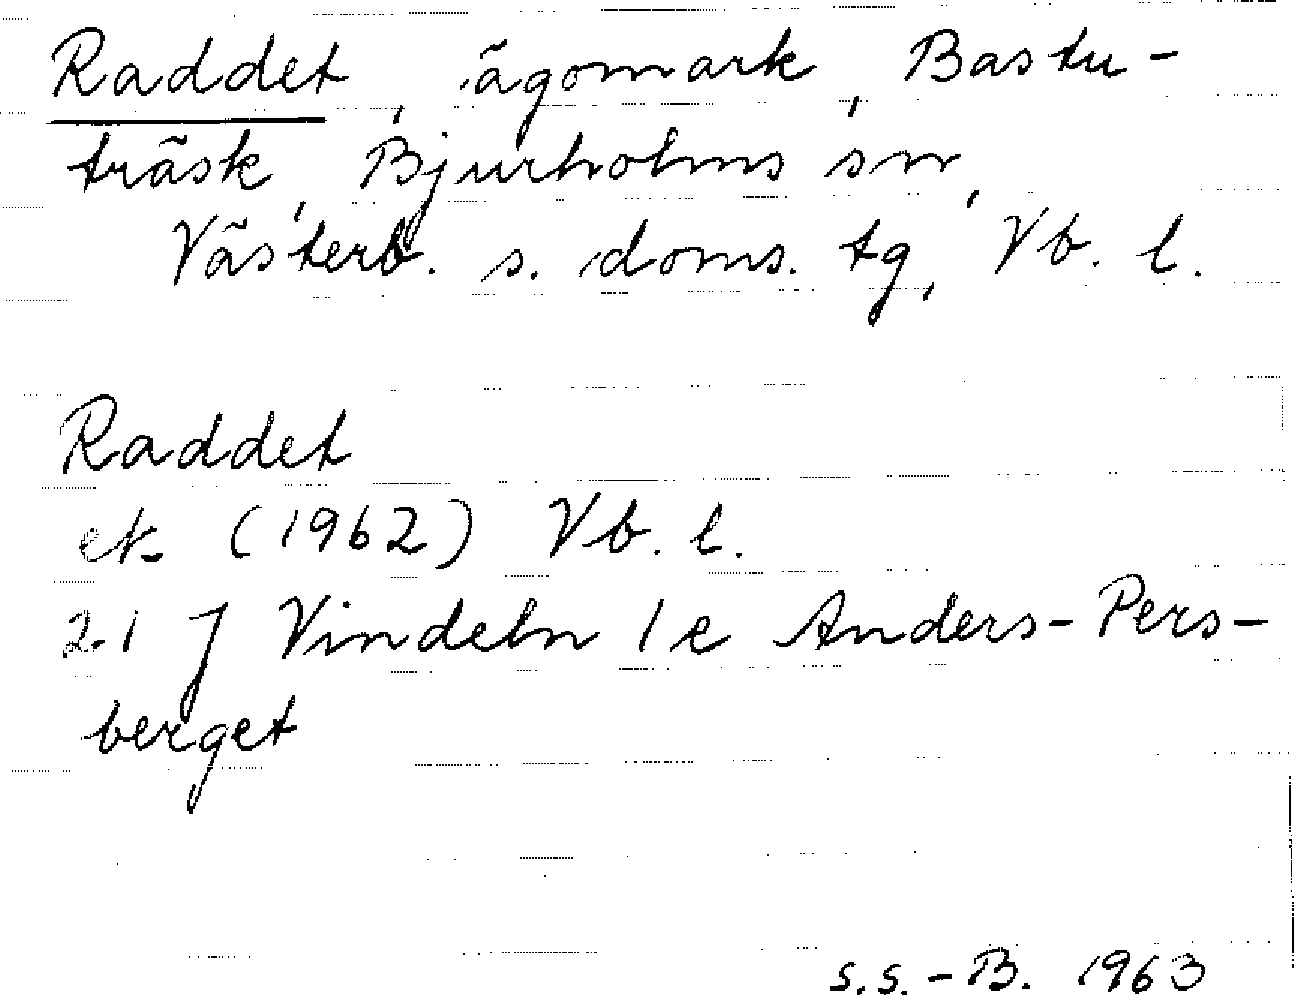 Raddet, ägomark, Bastu-
träsk, Bjurholms sn,
Västerb. s. doms. tg, Vb. l.
Raddet
ek. (1962) Vb. l.
21 J Vindeln 1e Anders-Pers-
berget
s.s.-B. 1963